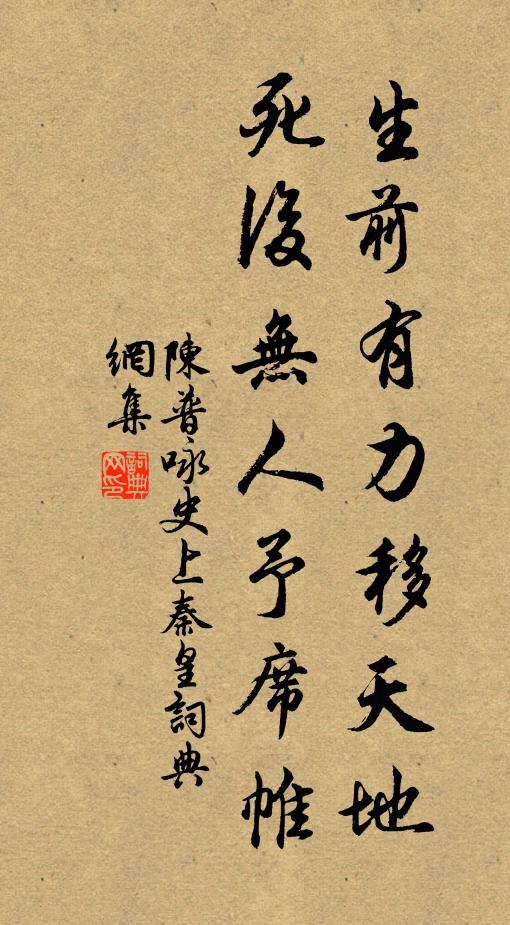 生前有力移天地
死後無人予席帷
陳普咏史上秦皇詞典
網集
詞典
网印